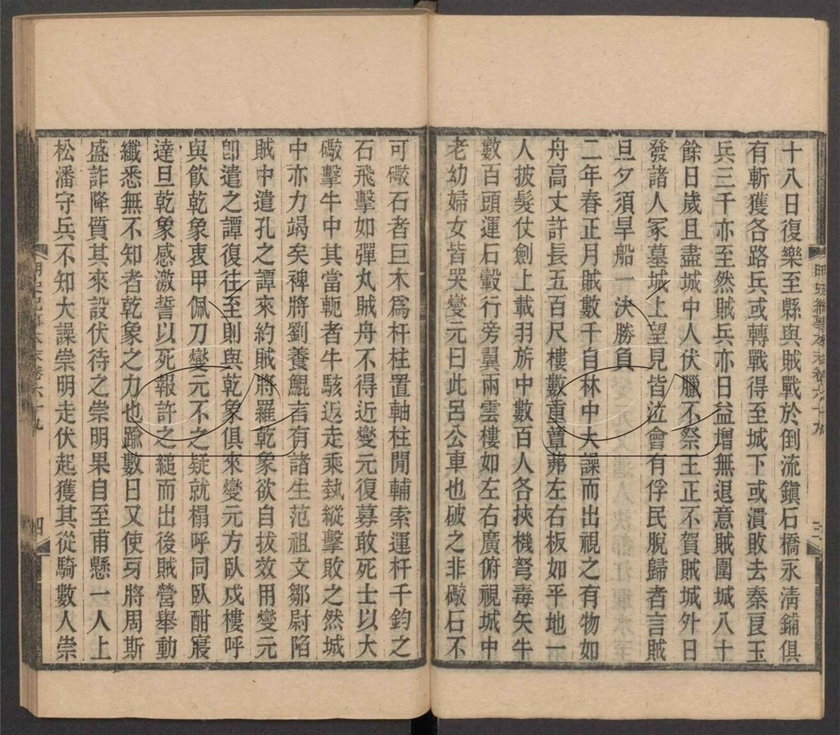 十八日復樂至縣與賊戰於倒流鎭石橋永淸鋪俱
有斬獲各路兵或轉戰得至城下或潰敗去秦良玉
兵三千亦至然賊兵亦日益增無退意賊圍城八十
餘日歲且盡城中人伏臘不祭王正不賀賊城外日
發諸人冢墓城上望見皆泣會有俘民脫歸者言賊
旦夕須旱船一決勝負
二年春正月賊數千自林中大譟而出視之有物如
舟高丈許長五百尺樓數重簟茀左右板如平地一
人披髮仗劍上載羽旂中數百人各挾機弩毒矢牛
數百頭運石轂行旁翼兩雲樓如左右廣俯視城中
老幼婦女皆哭變元曰此呂公車也破之非礮石不
明史紀事本末卷六十九
三
可礮石者巨木爲杆柱置軸柱閒輔索運杆千鈞之
石飛擊如彈丸賊舟不得近變元復募敢死士以大
礮擊牛中其當軛者牛駭返走乘埶縱擊敗之然城
中亦力竭矣裨將劉養鯤言有諸生范祖文鄒尉陷
賊中遣孔之譚來約賊將羅乾象欲自拔效用變元
卽遣之譚復往至則與乾象俱來變元方臥戍樓呼
與飮乾象衷甲佩刀變元不之疑就榻呼同臥酣寢
達旦乾象感激誓以死報許之縋而出後賊營舉動
纖悉無不知者乾象之力也踰數日又使牙將周斯
盛詐降質其來設伏待之崇明果自至甫懸一人上
松潘守兵不知大譟崇明走伏起獲其從騎數人崇
明史紀事本末卷六十九
四